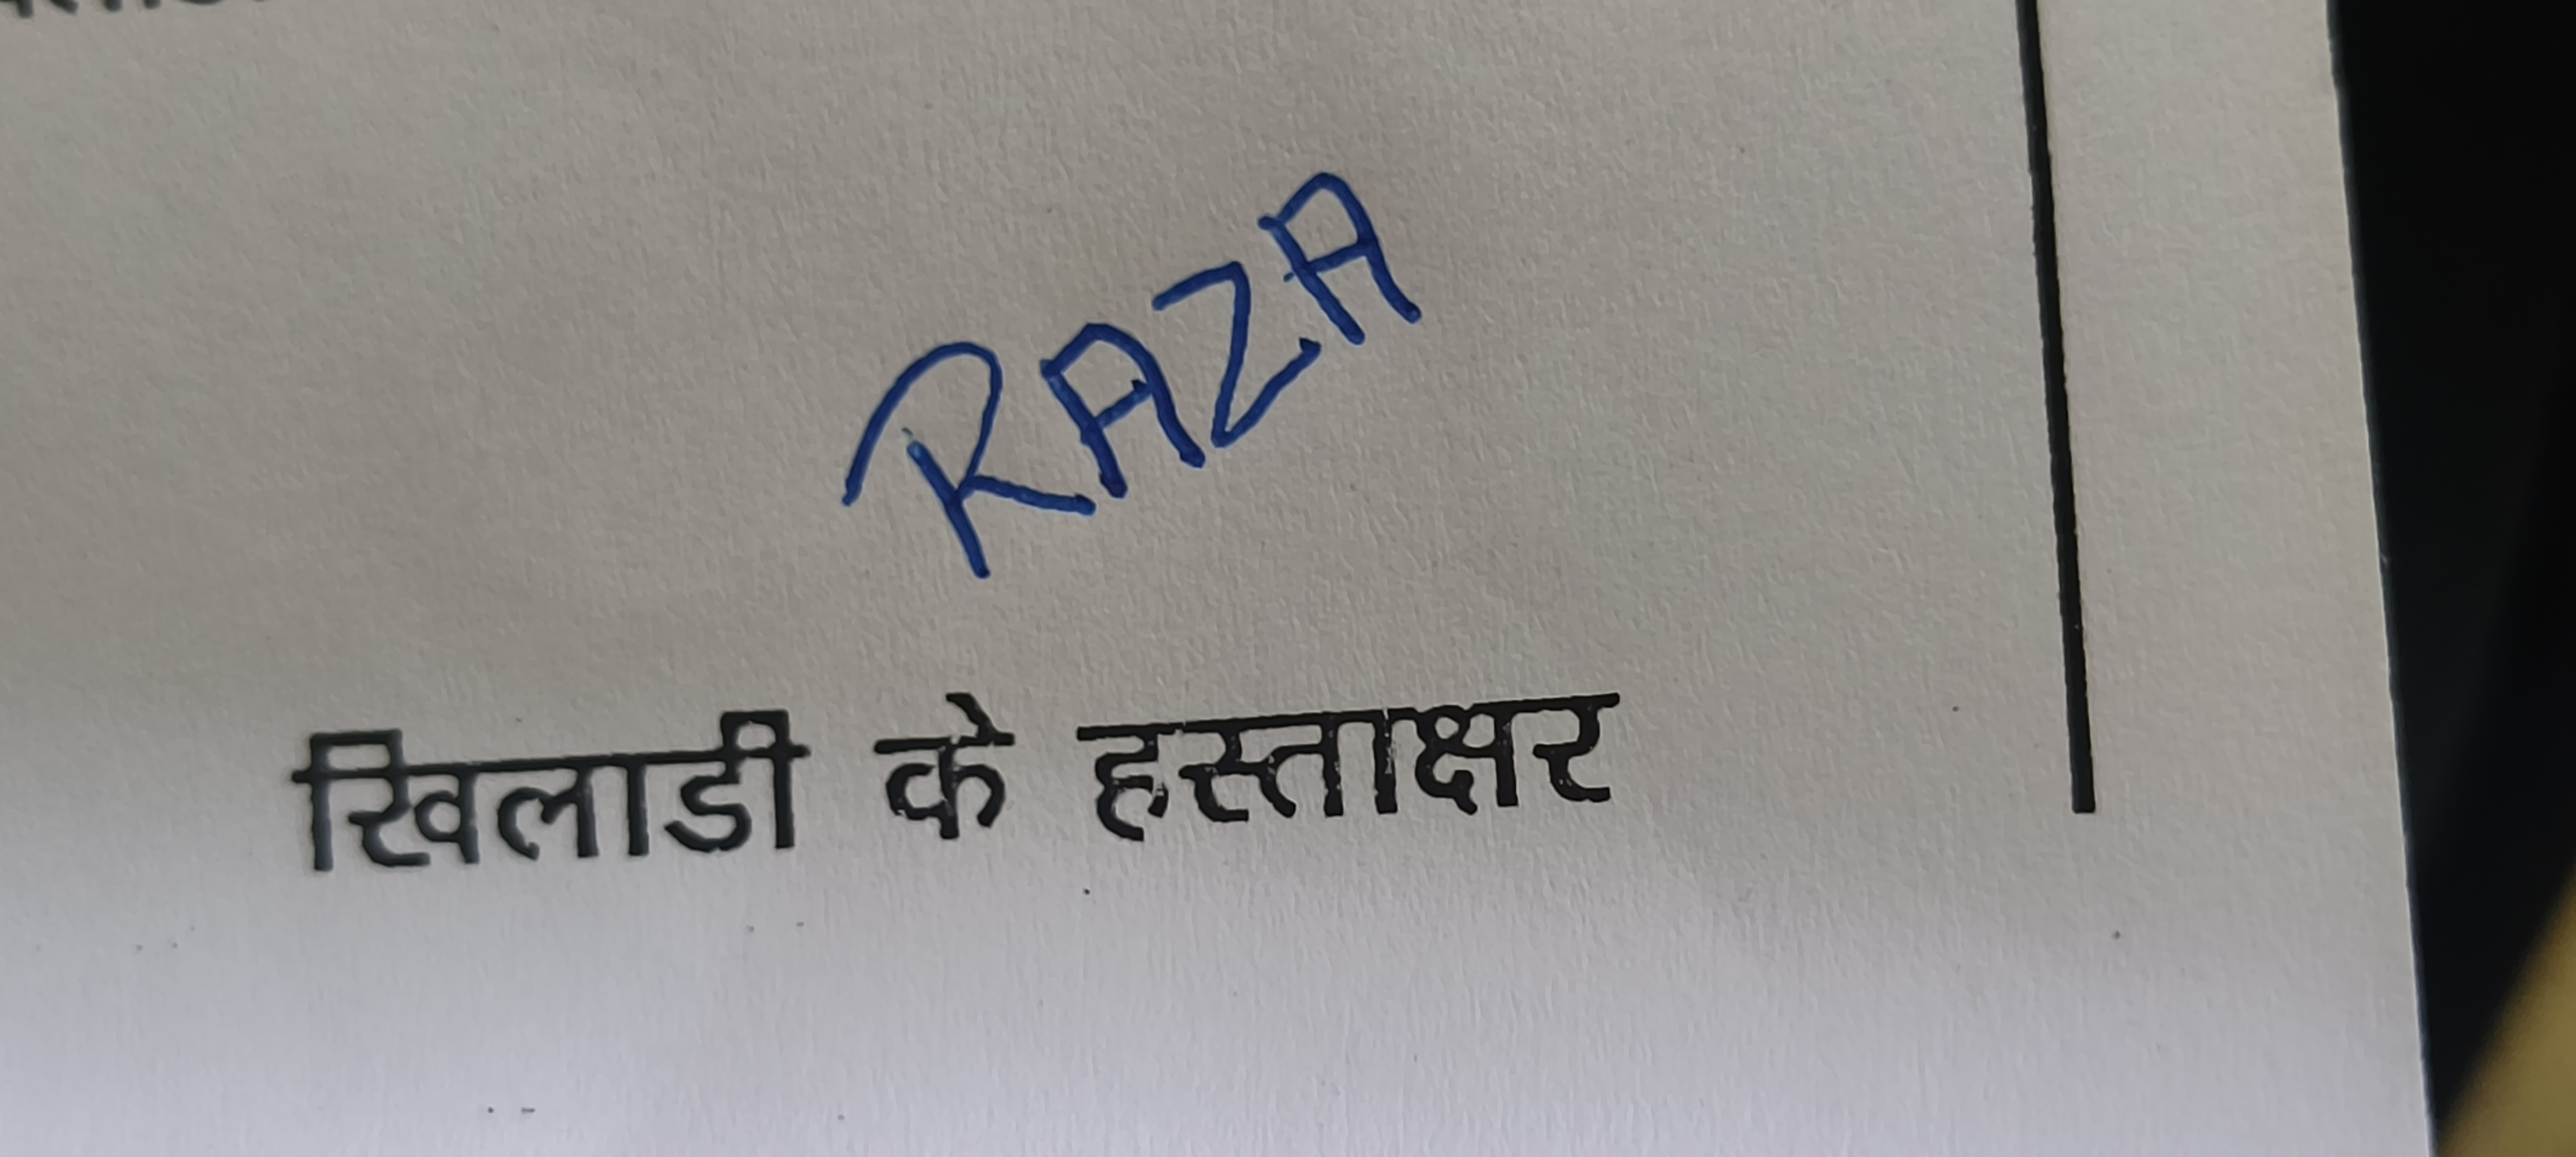 RAZA
खिलाडी के हस्ताक्षर